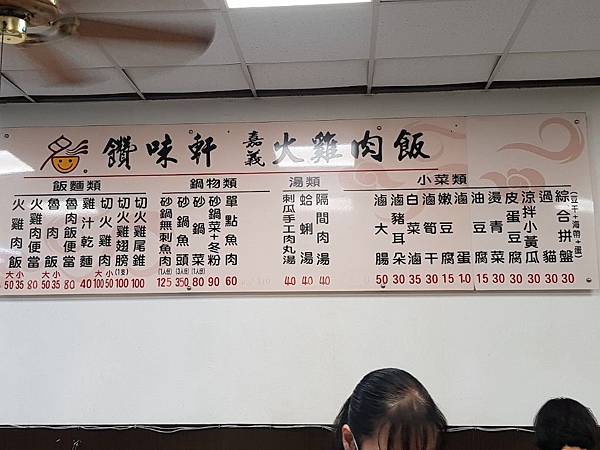 鑽味軒 嘉義 火雞肉飯
飯麵類
火雞肉飯 大50 小35
火雞肉便當 80
魯肉飯 大50 小35
魯肉飯便當 80
雞汁乾麵 40
切火雞肉 大100 小50
切火雞翅膀(1支) 100
切火雞尾錐 100
鍋物類
砂鍋無刺魚肉(1人份) 125
砂鍋魚頭(3人份) 350
砂鍋菜(1人份) 80
砂鍋菜+冬粉 90
單點魚肉 60
湯類
刺瓜手工肉丸湯 40
蛤蜊湯 40
隔間肉湯 40
小菜類
滷大腸 50
滷豬耳朵 30
白菜滷 35
滷筍干 30
嫩豆腐 15
滷蛋 10
油豆腐 15
燙青菜 30
皮蛋豆腐 30
涼拌小黃瓜 30
過貓 30
綜合拼盤(豆干+海帶+蛋) 30